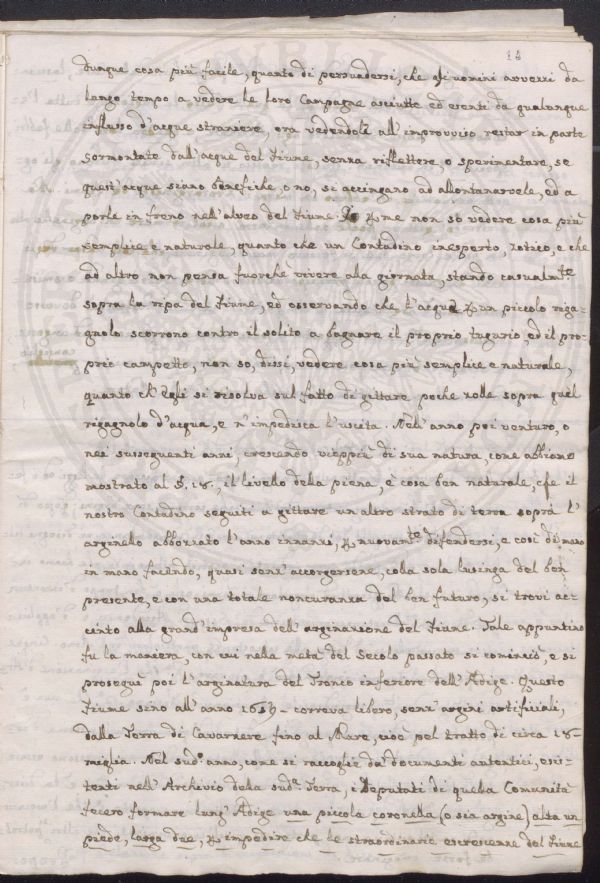 14
dunque cosa più facile, quanto di persuadersi, che gli uomini avvezzi da
lungo tempo a vedere le loro Campagne asciutte ed esenti da qualunque
influsso d'acque straniere, ora vedendole all'improvviso restar in parte
sormontate dall'acque del Fiume, senza riflettere, o sperimentare, se
quest'acque siano benefiche, o no, si accingano ad allontanarvele, ed a
porle in freno nell'alveo del Fiume. Io p me non so vedere cosa più
semplice e naturale, quanto che un Contadino inesperto, zotico, e che
ad altro non pensa fuorchè vivere alla giornata, stando casualmte
sopra la ripa del Fiume, ed osservando che l'acque p un piccolo riga-
gnolo scorrono contro il solito a bagnare il proprio tugurio ed il pro-
prio campetto, non so, dissi, vedere cosa più semplice e naturale,
quanto ch'Egli si risolva sul fatto di gittare poche zolle sopra quel
rigagnolo d'acqua, e n'impedisca l'uscita. Nell'anno poi venturo, o
nei susseguenti anni, crescendo vieppiù di sua natura, come abbiamo
mostrato al §. 18., il livello della piena, è cosa ben naturale, che il
nostro Contadino seguiti a gittare un altro strato di terra sopra l'
arginello abbozzato l'anno innanzi, p nuovamte difendersi, e così di mano
in mano facendo, quasi senz'accorgersene, colla sola lusinga del ben
presente, e con una totale noncuranza del ben futuro, si trovi ac-
cinto alla grand'impresa dell'arginazione del Fiume. Tale appuntino
fu la maniera, con cui nella metà del Secolo passato si cominciò, e si
proseguì poi l'arginatura del Tronco inferiore dell'Adige. Questo
Fiume sino all'anno correva libero, senz'argini artificiali,
dalla Terra di Cavarzere fino al Mare, cioè pel tratto di circa 18
miglia. Nel sudo anno, come si raccoglie da documenti autentici, esis-
tenti nell'Archivio della suda Terra, i Deputati di quella Comunità
fecero formare lung'Adige una piccola coronella (o sia argine) alta un
piede, larga due, p impedire che le straordinarie escrescenze del Fiume